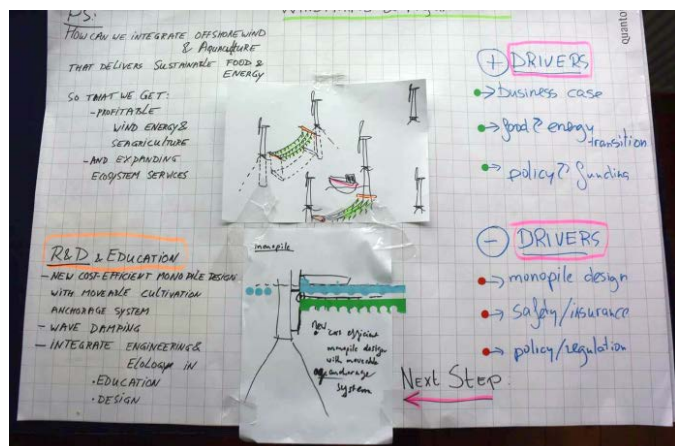 PS:
HOW CAN WE INTEGRATE OFFSHORE WIND
& AQUACULTURE
THAT DELIVERS SUSTAINABLE FOOD &
ENERGY
SO THAT WE GET:
- PROFITABLE
WIND ENERGY &
SEAGRICULTURE
- AND EXPANDING
ECOSYSTEM SERVICES
R&D & EDUCATION
- NEW COST-EFFICIENT MONOPILE DESIGN
WITH MOVEABLE CULTIVATION
ANCHORAGE SYSTEM
- WAVE DAMPING
- INTEGRATE ENGINEERING &
ELOLOGY IN
• EDUCATION
• DESIGN
monopile
new
cost efficient
monopile design
with moveable
anchorage
system
Next Step
+ DRIVERS
→ business case
→ food & energy
transition
→ policy & funding
- DRIVERS
→ monopile design
→ safety/insurance
→ policy/regulation
quanto